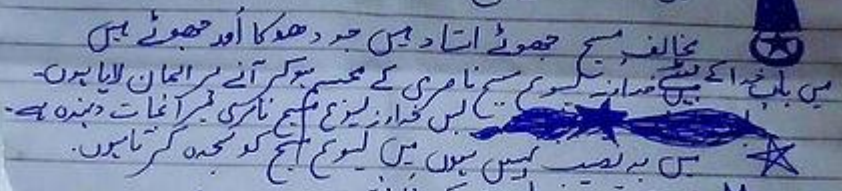 مخالف مسیح جھوٹے استاد ہیں جو دھوکا اور جھوٹے ہیں
میں باپ خدا کے بیٹے خداوند یسوع مسیح ناصری کے مجسم ہوکر آنے پر ایمان لایا ہوں۔
بس خداوند یسوع مسیح ناصری میرا نجات دہندہ ہے۔
میں بد نصیب نہیں ہوں میں یسوع مسیح کو سجدہ کرتا ہوں۔